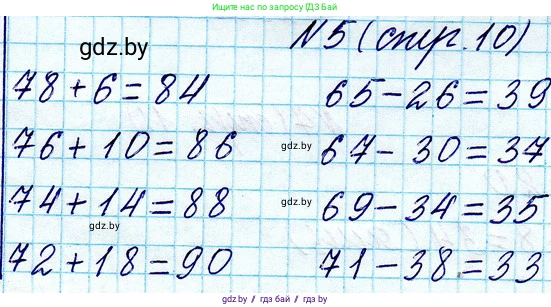 Больше по запросу ГДЗ.БАЙ
gdz.by
N 5 (стр. 10)
78+6=84
65-26=39
76+10=86
gdz.by
67-30=37
74+14=88
gdz.by
69-34=35
gdz.by
72+18=90
71-38=33
gdz.by / гдз бай / gdz.by